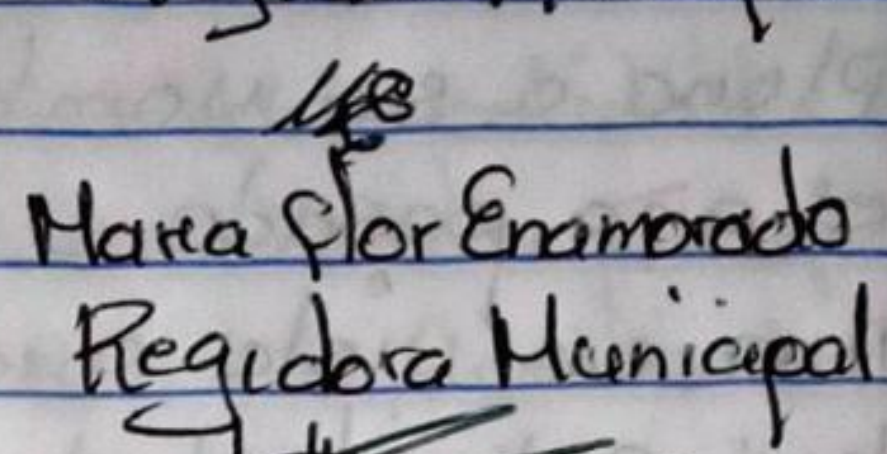 Maria flor Enamorado
Regidora Municipal